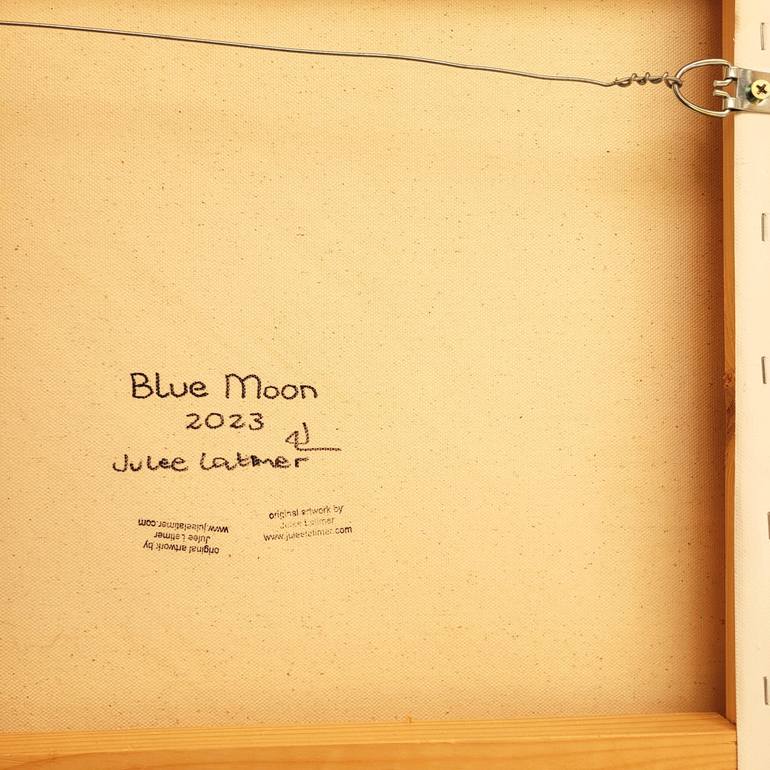 Blue Moon
2023
Julee Latimer
original artwork by
Julee Latimer
www.juleelatimer.com
original artwork by
Julee Latimer
www.juleelatimer.com